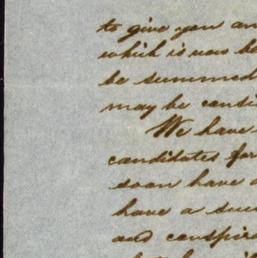 to give you an
which is now be
be summed
may be consi
We have
candidates for
soon have a
have a suc
and conspir